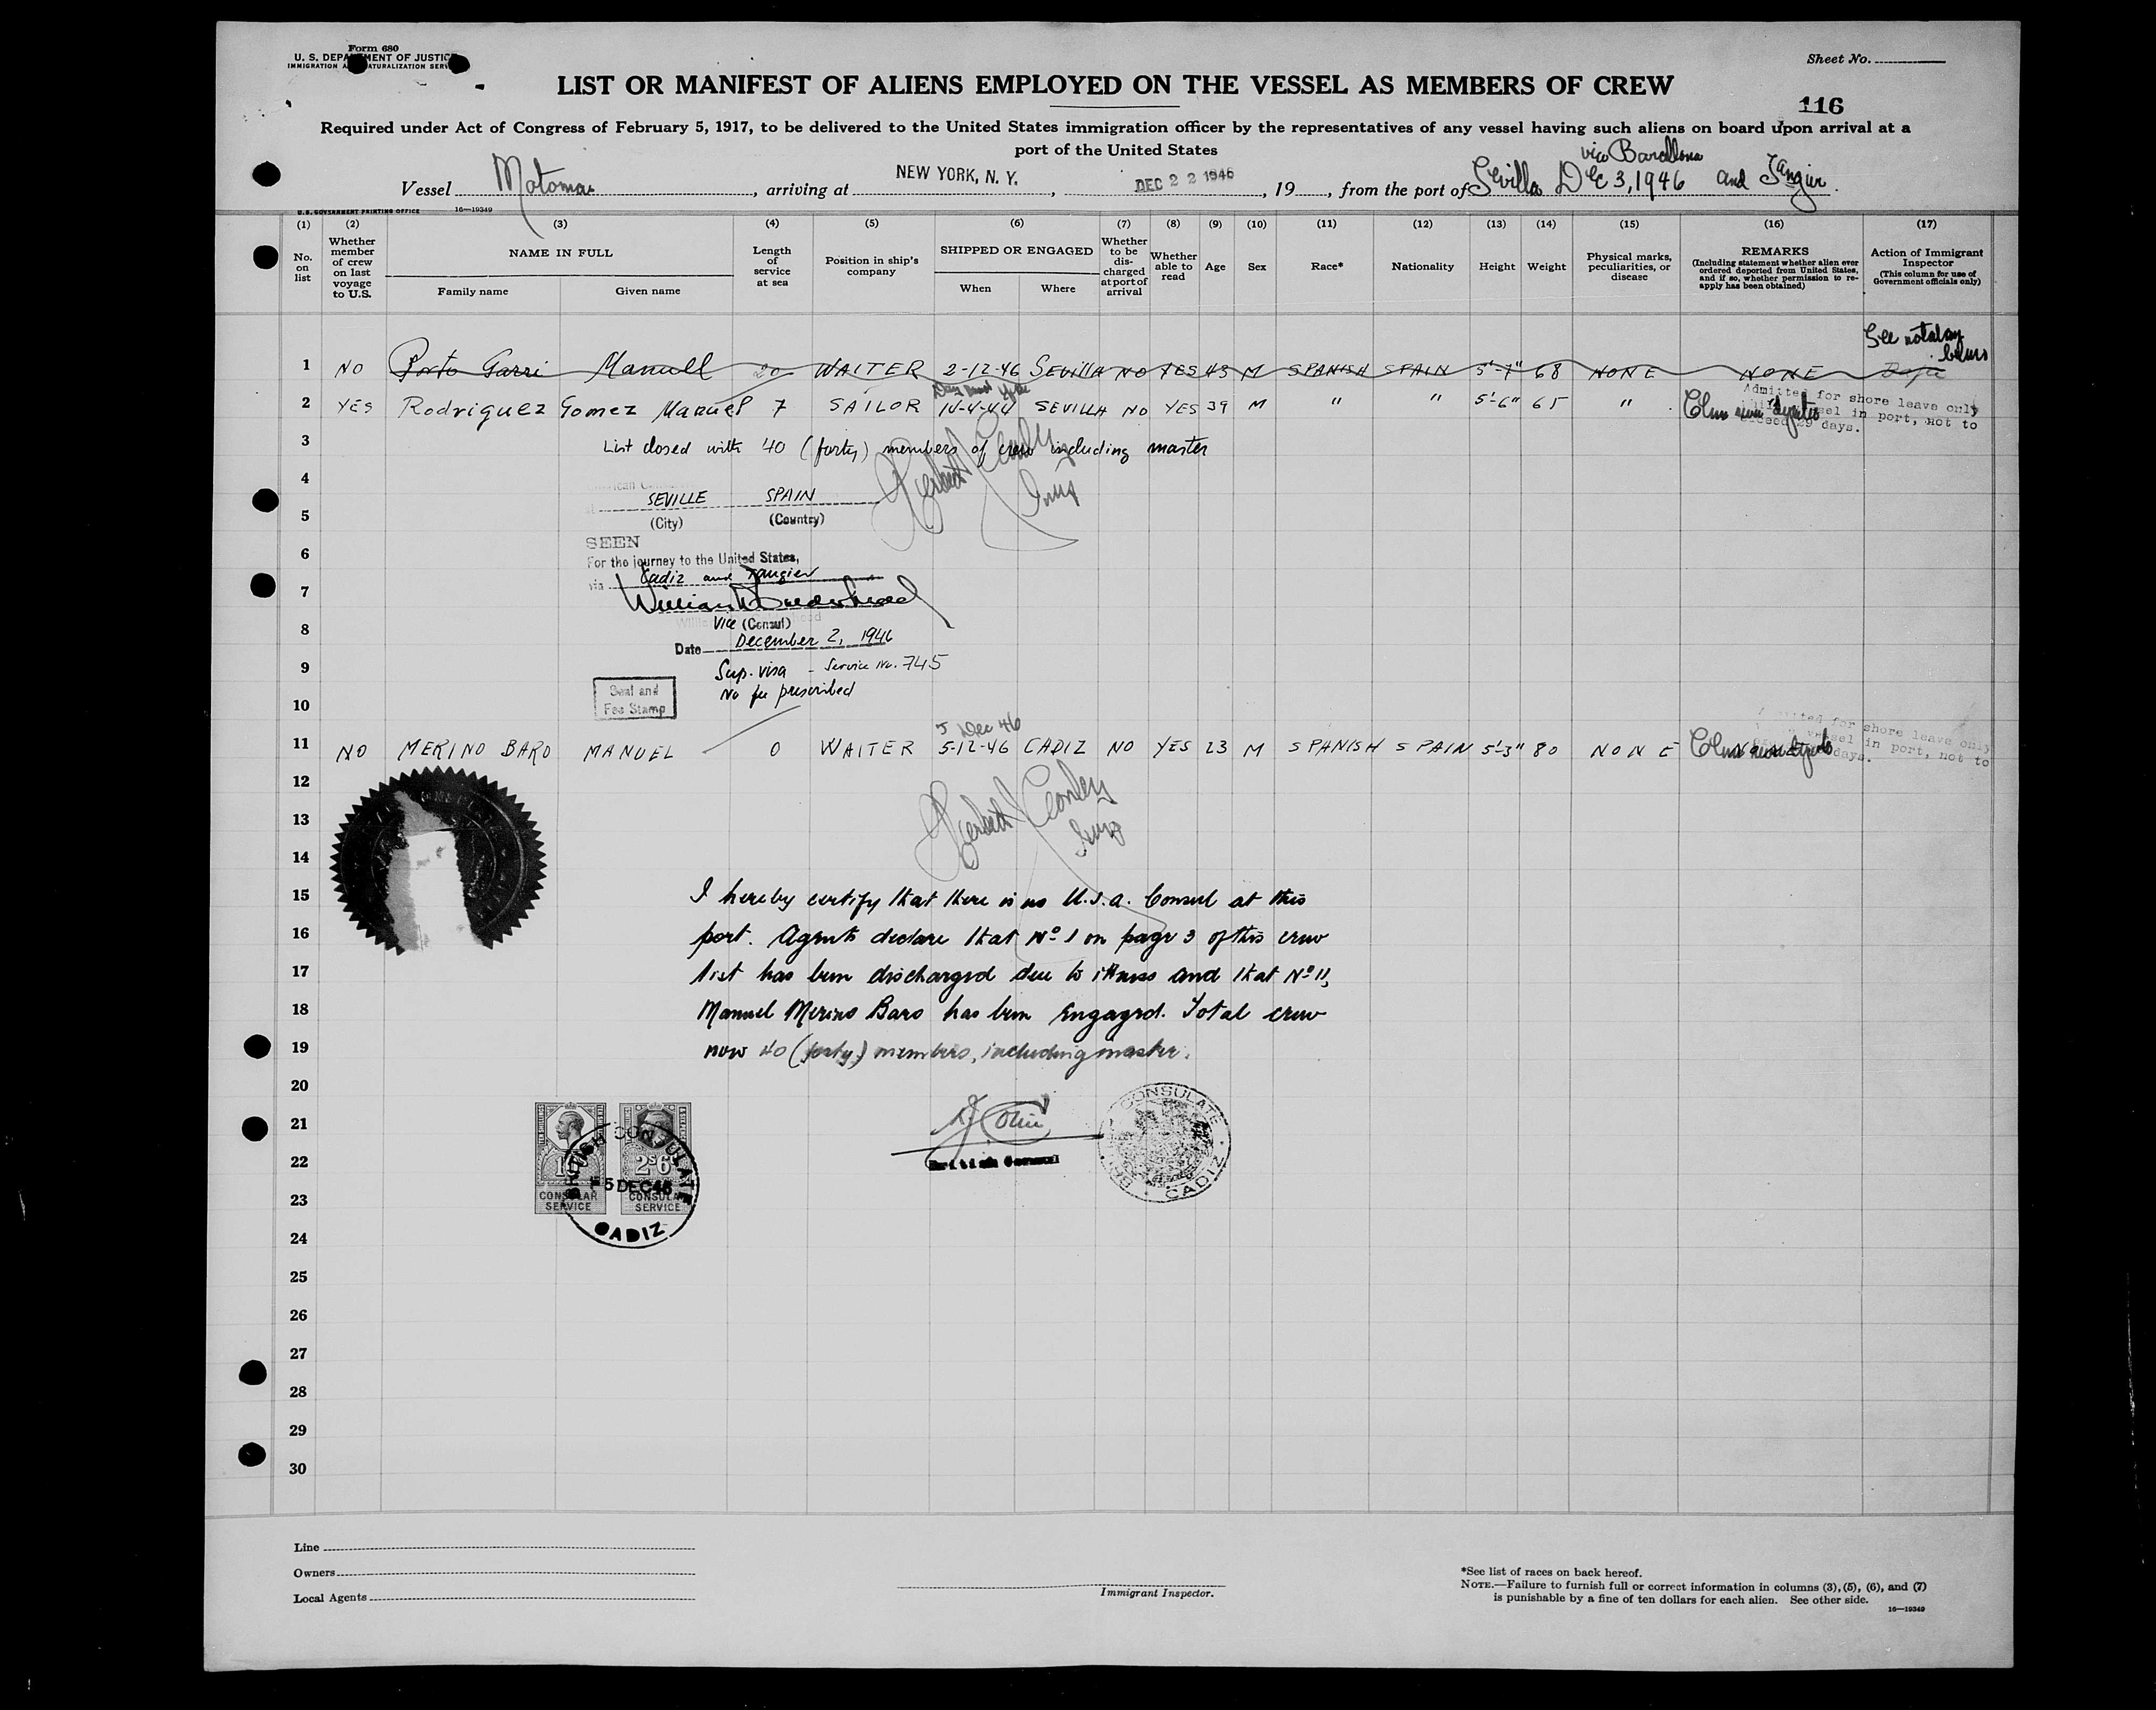 Form 680
U. S. DEPARTMENT OF JUSTICE
IMMIGRATION AND NATURALIZATION SERVICE
Sheet No.
LIST OR MANIFEST OF ALIENS EMPLOYED ON THE VESSEL AS MEMBERS OF CREW
116
Required under Act of Congress of February 5, 1917, to be delivered to the United States immigration officer by the representatives of any vessel having such aliens on board upon arrival at a
port of the United States
via Barcellona
Vessel Motomar, arriving at NEW YORK, N. Y., DEC 22 1946, 19, from the port of Sevilla Dec 3, 1946 and Tangier.
U. S. GOVERNMENT PRINTING OFFICE 16—19349
(1) (2) (3) (4) (5) (6) (7) (8) (9) (10) (11) (12) (13) (14) (15) (16) (17)
No. on list
Whether member of crew on last voyage to U.S.
NAME IN FULL
Family name Given name
Length of service at sea
Position in ship's company
SHIPPED OR ENGAGED
When Where
Whether to be discharged at port of arrival
Whether able to read
Age
Sex
Race*
Nationality
Height
Weight
Physical marks, peculiarities, or disease
REMARKS
(Including statement whether alien ever ordered deported from United States, and if so, whether permission to re-apply has been obtained)
Action of Immigrant Inspector
(This column for use of Government officials only)
See
1 NO Porto Garri Manuel 20 WAITER 2-12-46 SEVILLA NO YES 43 M SPANISH SPAIN 5'-7" 68 NONE NONE
2 YES Rodriguez Gomez Manuel 7 SAILOR 14-4-44 SEVILLA NO YES 39 M " " 5'-6" 65 "
Admitted for shore leave only
vessel in port, not to
exceed 29 days.
3 List closed with 40 (forty) members of crew including master
4
SEVILLE SPAIN
5 (City) (Country)
SEEN
6 For the journey to the United States,
via Cadiz and Tangier
7
8 Vice (Consul)
Date December 2, 1946
9 Sup. visa - Service No. 745
Seal and
Fee Stamp
10 No fee prescribed
5 Dec 46
11 NO MERINO BARO MANUEL 0 WAITER 5-12-46 CADIZ NO YES 23 M SPANISH SPAIN 5'-3" 80 NONE
Admitted for shore leave only
vessel in port, not to
days.
12
13
14
15 I hereby certify that there is no U.S.A. Consul at this
16 port. Agents declare that Nº 1 on page 3 of this crew
17 list has been discharged due to illness and that Nº 11,
18 Manuel Merino Baro has been Engaged. Total crew
19 now 40 (forty) members, including master.
20
21
22 British Consul
23
24
25
26
27
28
29
30
2s6d
CONSULAR SERVICE
CONSULAR SERVICE
BRITISH CONSULATE
5 DEC 46
CADIZ
BRITISH CONSULATE CADIZ
Line
Owners
Local Agents
Immigrant Inspector.
*See list of races on back hereof.
NOTE.—Failure to furnish full or correct information in columns (3), (5), (6), and (7)
is punishable by a fine of ten dollars for each alien. See other side.
16—19349